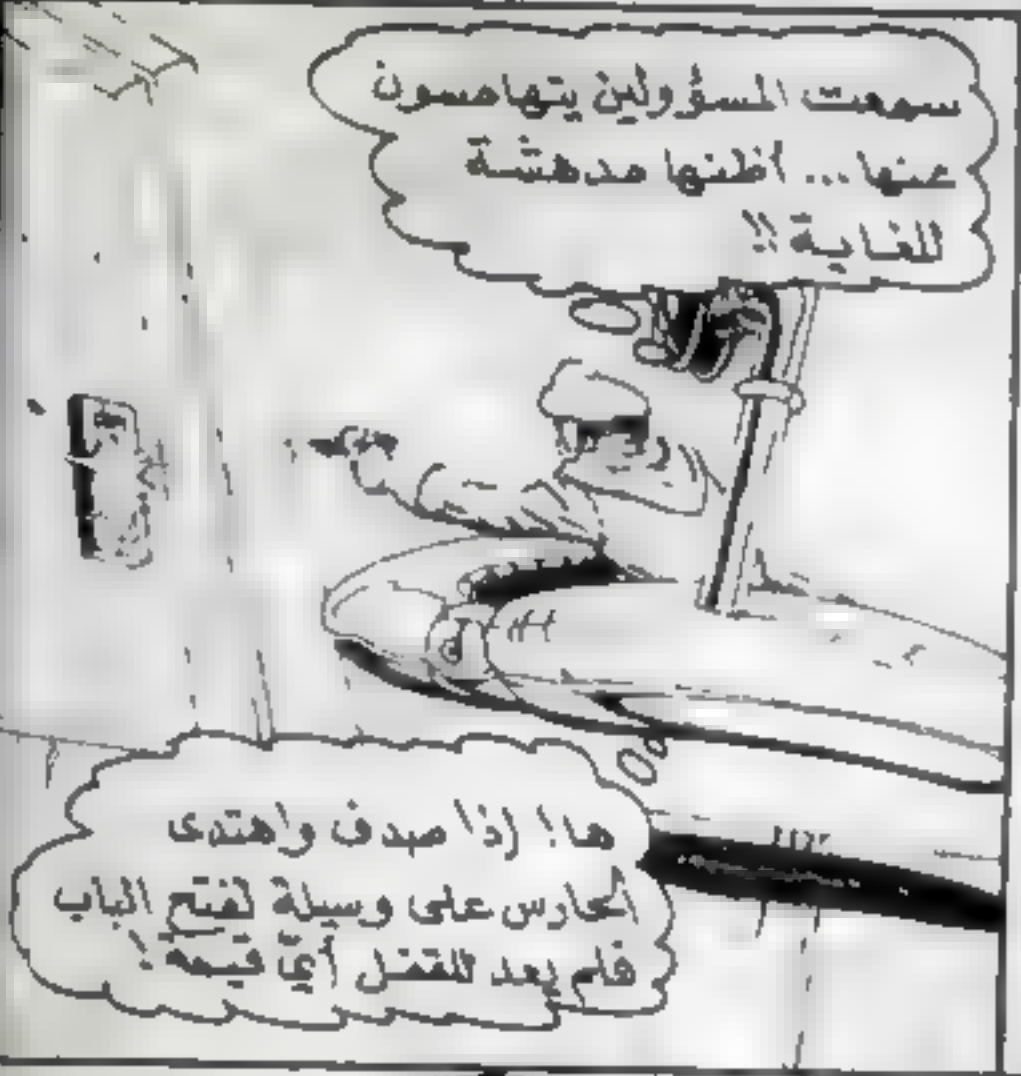 سمعت المسؤولين يتهامسون
عنها... أظنها مدهشة
للغاية!!
ها! إذا صدف واهتدى
الحارس على وسيلة لفتح الباب
فلم يعد للقفل أيّ قيمة!